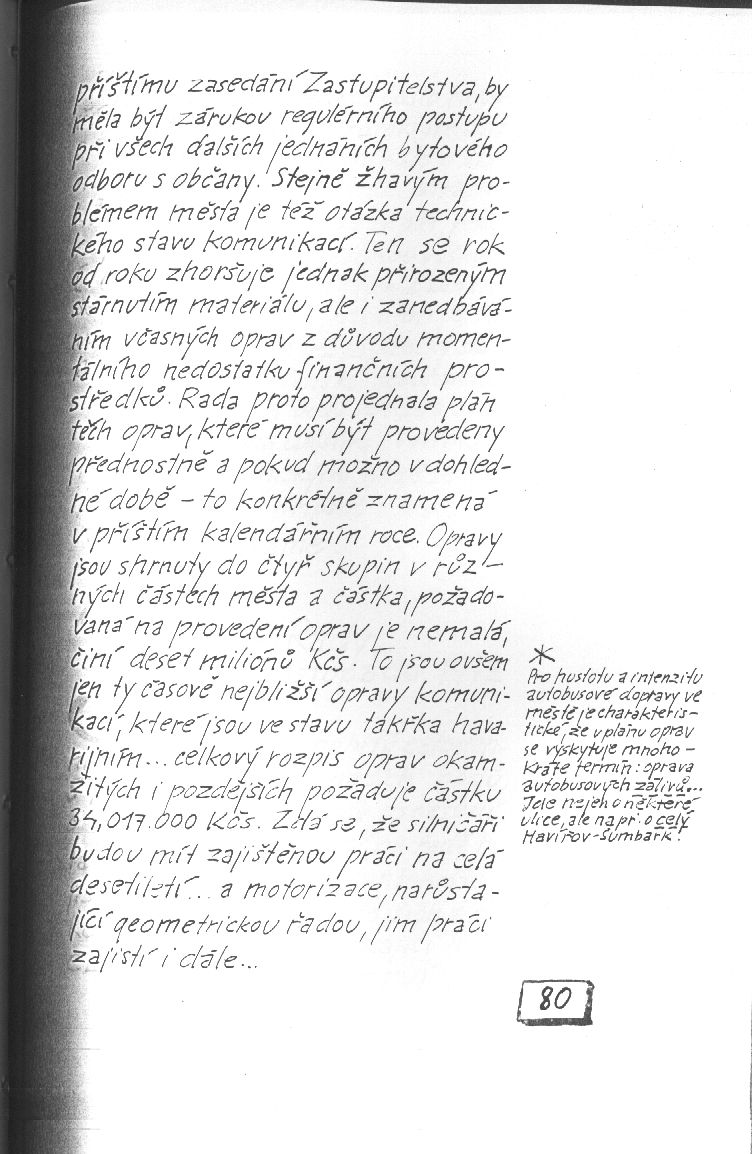 příštímu zasedání Zastupitelstva, by
měla být zárukou regulérního postupu
při všech dalších jednáních bytového
odboru s občany. Stejně žhavým pro-
blémem města je též otázka technic-
kého stavu komunikací. Ten se rok
od roku zhoršuje jednak přirozeným
stárnutím materiálu, ale i zanedbává-
ním včasných oprav z důvodu momen-
tálního nedostatku finančních pro-
středků. Rada proto projednala plán
těch oprav, které musí být provedeny
přednostně a pokud možno v dohled-
né době – to konkrétně znamená
v příštím kalendářním roce. Opravy
jsou shrnuty do čtyř skupin v růz-
ných částech města a částka, požado-
vaná na provedení oprav je nemalá,
činí deset miliónů Kčs. To jsou ovšem
jen ty časově nejbližší opravy komuni-
kací, které jsou ve stavu takřka hava-
rijním... celkový rozpis oprav okam-
žitých i pozdějších požaduje částku
34,017.000 Kčs. Zdá se, že silničáři
budou mít zajištěnou práci na celá
desetiletí... a motorizace, narůsta-
jící geometrickou řadou, jim práci
zajistí i dále...
*
Pro hustotu a intenzitu
autobusové dopravy ve
městě je charakteris-
tické, že v plánu oprav
se vyskytuje mnoho-
kráte termín: oprava
autobusových zálivů...
Jde nejen o některé
ulice, ale např. o celý
Havířov-Šumbark!
80